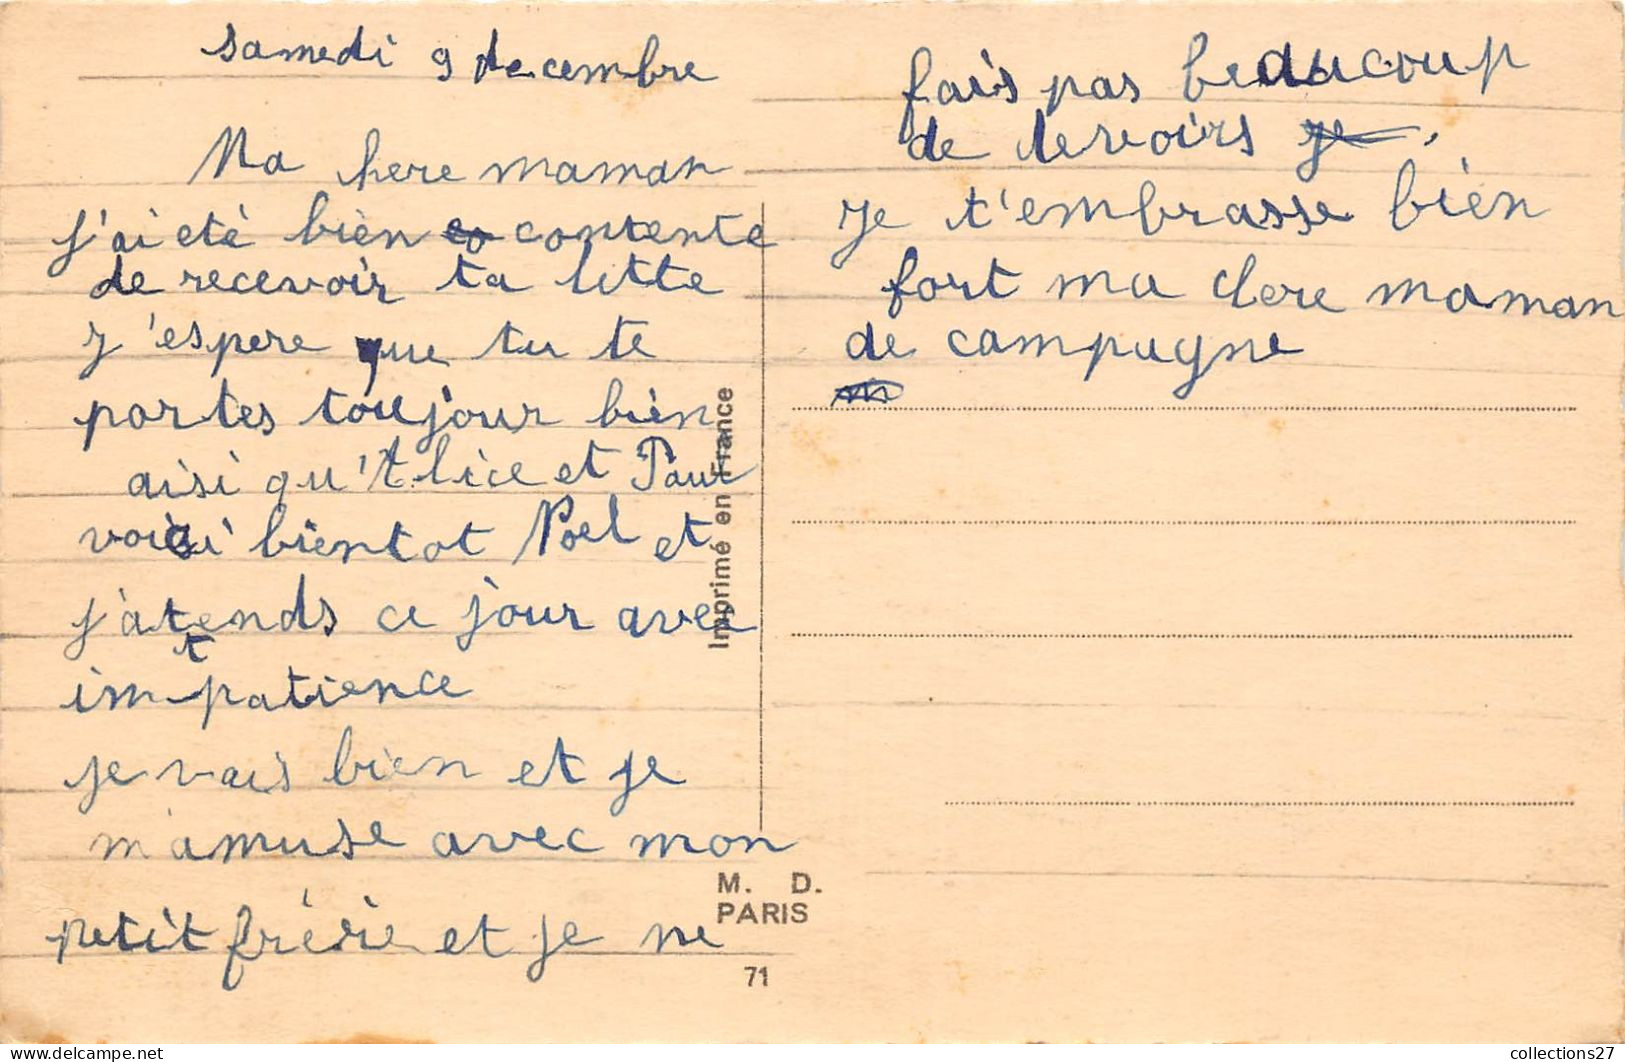 samedi 9 decembre
Ma here maman
j'ai eté bien co contente
de recevoir ta lette
J'espere que tu te
portes toujour bien
aisi qu'Alice et Paul
voici bientot Noel et
j'atends ce jour avec
t
impatience
je vais bien et je
m'amuse avec mon
petit frére et je ne
fais pas beaucoup
de devoirs je.
Je t'embrasse bien
fort ma chere maman
de campagne
m
Imprimé en France
M. D.
PARIS
71
collections27